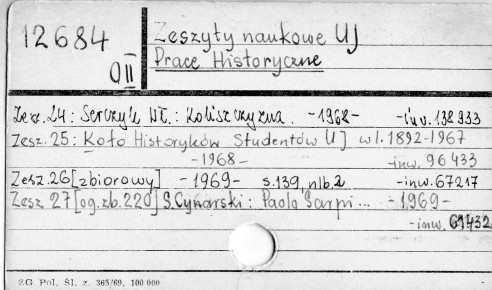 12684
OII
Zeszyty naukowe UJ
Prace Historyczne
Zesz. 24: Serczyk Wł.: Koliszczyzna. -1968- -inw. 138933
Zesz. 25: Koło Historyków Studentów UJ w l. 1892-1967
-1968- -inw. 96433
Zesz. 26 [zbiorowy] -1969- s.139, nlb.2 -inw. 67217
Zesz. 27 [og.zb. 220] S. Cynarski: Paolo Sarpi... -1969-
-inw. 69432
2.G Pol. Śl. z. 365/69, 100 000